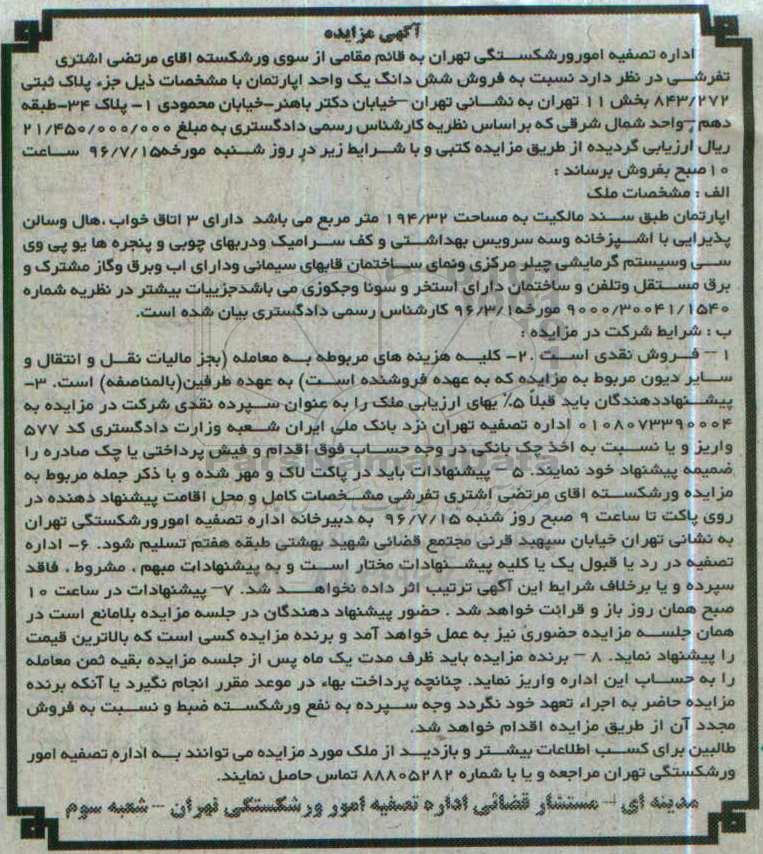 آگهی مزایده
اداره تصفیه امورورشکستگی تهران به قائم مقامی از سوی ورشکسته اقای مرتضی اشتری
تفرشی در نظر دارد نسبت به فروش شش دانگ یک واحد اپارتمان با مشخصات ذیل جزء پلاک ثبتی
۸۴۳/۲۷۲ بخش ۱۱ تهران به نشانی تهران –خیابان دکتر باهنر-خیابان محمودی ۱- پلاک ۳۴-طبقه
دهم –واحد شمال شرقی که براساس نظریه کارشناس رسمی دادگستری به مبلغ ۲۱/۴۵۰/۰۰۰/۰۰۰
ریال ارزیابی گردیده از طریق مزایده کتبی و با شرایط زیر در روز شنبه مورخه۹۶/۷/۱۵ ساعت
۱۰صبح بفروش برساند :
الف : مشخصات ملک
اپارتمان طبق سند مالکیت به مساحت ۱۹۴/۳۲ متر مربع می باشد دارای ۳ اتاق خواب ،هال وسالن
پذیرایی با اشپزخانه وسه سرویس بهداشتی و کف سرامیک ودربهای چوبی و پنجره ها یو پی وی
سی وسیستم گرمایشی چیلر مرکزی ونمای ساختمان قابهای سیمانی ودارای اب وبرق وگاز مشترک و
برق مستقل وتلفن و ساختمان دارای استخر و سونا وجکوزی می باشدجزییات بیشتر در نظریه شماره
۹۰۰۰/۳۰۰۴۱/۱۵۴۰ مورخه۹۶/۳/۱ کارشناس رسمی دادگستری بیان شده است.
ب : شرایط شرکت در مزایده :
۱– فروش نقدی است .۲- کلیه هزینه های مربوطه به معامله (بجز مالیات نقل و انتقال و
سایر دیون مربوط به مزایده که به عهده فروشنده است) به عهده طرفین(بالمناصفه) است. ۳-
پیشنهاددهندگان باید قبلا ۵٪ بهای ارزیابی ملک را به عنوان سپرده نقدی شرکت در مزایده به
۰۱۰۸۰۷۳۳۹۰۰۰۴ اداره تصفیه تهران نزد بانک ملی ایران شعبه وزارت دادگستری کد ۵۷۷
واریز و یا نسبت به اخذ چک بانکی در وجه حساب فوق اقدام و فیش پرداختی یا چک صادره را
ضمیمه پیشنهاد خود نمایند. ۵– پیشنهادات باید در پاکت لاک و مهر شده و با ذکر جمله مربوط به
مزایده ورشکسته اقای مرتضی اشتری تفرشی مشخصات کامل و محل اقامت پیشنهاد دهنده در
روی پاکت تا ساعت ۹ صبح روز شنبه ۹۶/۷/۱۵ به دبیرخانه اداره تصفیه امورورشکستگی تهران
به نشانی تهران خیابان سپهبد قرنی مجتمع قضائی شهید بهشتی طبقه هفتم تسلیم شود. ۶- اداره
تصفیه در رد یا قبول یک یا کلیه پیشنهادات مختار است و به پیشنهادات مبهم ، مشروط ، فاقد
سپرده و یا برخلاف شرایط این آگهی ترتیب اثر داده نخواهد شد. ۷– پیشنهادات در ساعت ۱۰
صبح همان روز باز و قرائت خواهد شد . حضور پیشنهاد دهندگان در جلسه مزایده بلامانع است در
همان جلسه مزایده حضوری نیز به عمل خواهد آمد و برنده مزایده کسی است که بالاترین قیمت
را پیشنهاد نماید. ۸ – برنده مزایده باید ظرف مدت یک ماه پس از جلسه مزایده بقیه ثمن معامله
را به حساب این اداره واریز نماید. چنانچه پرداخت بهاء در موعد مقرر انجام نگیرد یا آنکه برنده
مزایده حاضر به اجراء تعهد خود نگردد وجه سپرده به نفع ورشکسته ضبط و نسبت به فروش
مجدد آن از طریق مزایده اقدام خواهد شد.
طالبین برای کسب اطلاعات بیشتر و بازدید از ملک مورد مزایده می توانند به اداره تصفیه امور
ورشکستگی تهران مراجعه و یا با شماره ۸۸۸۰۵۲۸۲ تماس حاصل نمایند.
مدینه ای – مستشار قضائی اداره تصفیه امور ورشکستگی تهران – شعبه سوم